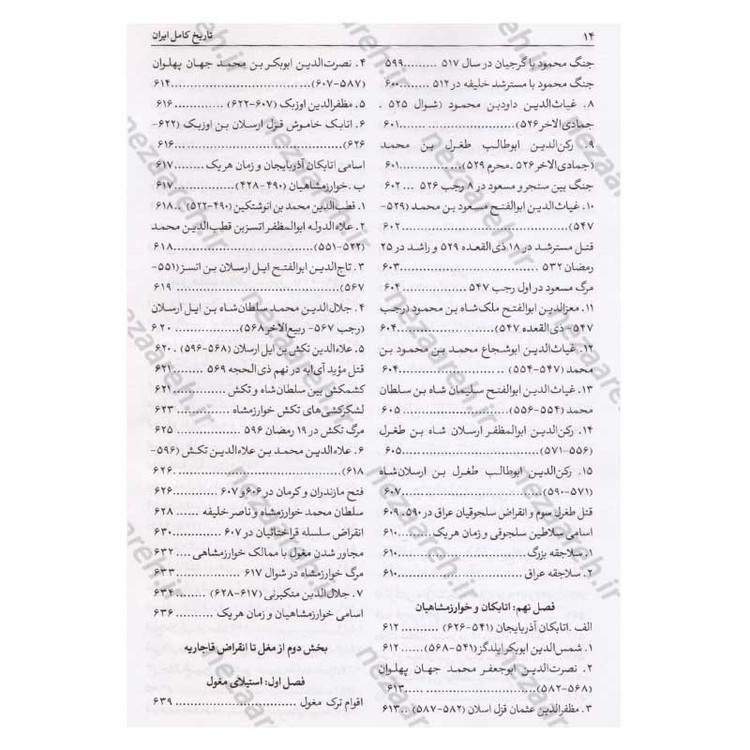 ۱۴
تاریخ کامل ایران
جنگ محمود با گرجیان در سال ۵۱۷ .......... ۵۹۹
جنگ محمود با مسترشد خلیفه در ۵۱۲ ..... ۶۰۰
۸. غیاث‌الدین داودبن محمود (شوال ۵۲۵ .
جمادی‌الاخر ۵۲۶) .......... ۶۰۱
۹. رکن‌الدین ابوطالب طغرل بن محمد
(جمادی‌الاخر ۵۲۶ . محرم ۵۲۹) .......... ۶۰۱
جنگ بین سنجر و مسعود در ۸ رجب ۵۲۶ ... ۶۰۲
۱۰. غیاث‌الدین ابوالفتح مسعود بن محمد (۵۲۹-
۵۴۷) .......... ۶۰۲
قتل مسترشد در ۱۸ ذی‌القعده ۵۲۹ و راشد در ۲۵
رمضان ۵۳۲ .......... ۶۰۳
مرگ مسعود در اول رجب ۵۴۷ .......... ۶۰۴
۱۱. معزالدین ابوالفتح ملک‌شاه بن محمود (رجب
۵۴۷- ذی القعده ۵۴۷) .......... ۶۰۴
۱۲. غیاث‌الدین ابوشجاع محمد بن محمود بن
محمد (۵۴۷-۵۵۴) .......... ۶۰۴
۱۳. غیاث‌الدین ابوالفتح سلیمان شاه بن سلطان
محمد (۵۵۴-۵۵۶) .......... ۶۰۵
۱۴. رکن‌الدین ابوالمظفر ارسلان شاه بن طغرل
(۵۵۶-۵۷۱) .......... ۶۰۵
۱۵. رکن‌الدین ابوطالب طغرل بن ارسلان‌شاه
(۵۷۱-۵۹۰) .......... ۶۰۷
قتل طغرل سوم و انقراض سلجوقیان عراق در ۵۹۰. ۶۰۹
اسامی سلاطین سلجوقی و زمان هریک .......... ۶۱۰
۱. سلاجقه بزرگ .......... ۶۱۰
۲. سلاجقه عراق .......... ۶۱۰
فصل نهم: اتابکان و خوارزمشاهیان
الف .اتابکان آذربایجان (۵۴۱-۶۲۶) .......... ۶۱۲
۱. شمس‌الدین ابوبکر ایلدگز (۵۴۱-۵۶۸) ... ۶۱۲
۲. نصرت‌الدین ابوجعفر محمد جهان پهلوان
(۵۶۸-۵۸۲) .......... ۶۱۳
۳. مظفرالدین عثمان قزل اسلان (۵۸۲-۵۸۷) .. ۶۱۳
۴. نصرت‌الدین ابوبکر بن محمد جهان پهلوان
(۵۸۷-۶۰۷) .......... ۶۱۴
۵. مظفرالدین اوزبک (۶۰۷-۶۲۲) .......... ۶۱۶
۶. اتابک خاموش قزل ارسلان بن اوزبک (۶۲۲-
۶۲۶) .......... ۶۱۶
اسامی اتابکان آذربایجان و زمان هریک .......... ۶۱۷
ب .خوارزمشاهیان (۴۹۰-۴۲۸) .......... ۶۱۷
۱. قطب‌الدین محمد بن انوشتکین (۴۹۰-۵۲۲) .. ۶۱۸
۲. علاءالدوله ابوالمظفر اتسز بن قطب‌الدین محمد
(۵۲۲-۵۵۱) .......... ۶۱۸
۳. تاج‌الدین ابوالفتح ایل ارسلان بن اتسز (۵۵۱-
۵۶۷) .......... ۶۱۹
۴. جلال‌الدین محمد سلطان‌شاه بن ایل ارسلان
(رجب ۵۶۷- ربیع‌الاخر ۵۶۸) .......... ۶۲۰
۵. علاءالدین تکش بن ایل ارسلان (۵۶۸-۵۹۶) . ۶۲۰
قتل مؤید آی‌ابه در نهم ذی الحجه ۵۶۹ ... ۶۲۱
کشمکش بین سلطان شاه و تکش .......... ۶۲۱
لشکرکشی‌های تکش خوارزمشاه .......... ۶۲۳
مرگ تکش در ۱۹ رمضان ۵۹۶ .......... ۶۲۵
۶. علاءالدین محمد بن علاءالدین تکش (۵۹۶-
۶۱۸) .......... ۶۲۶
فتح مازندران و کرمان در ۶۰۶ و ۶۰۷ .......... ۶۲۶
سلطان محمد خوارزمشاه و ناصر خلیفه ...... ۶۲۸
انقراض سلسله قراختائیان در ۶۰۷ .......... ۶۳۰
مجاور شدن مغول با ممالک خوارزمشاهی ... ۶۳۲
مرگ خوارزمشاه در شوال ۶۱۷ .......... ۶۳۳
۷. جلال‌الدین منکبرنی (۶۱۷-۶۲۸) .......... ۶۳۴
اسامی خوارزمشاهیان و زمان هریک .......... ۶۳۶
بخش دوم از مغل تا انقراض قاجاریه
فصل اول: استیلای مغول
اقوام ترک مغول .......... ۶۳۹
nezaareh.ir